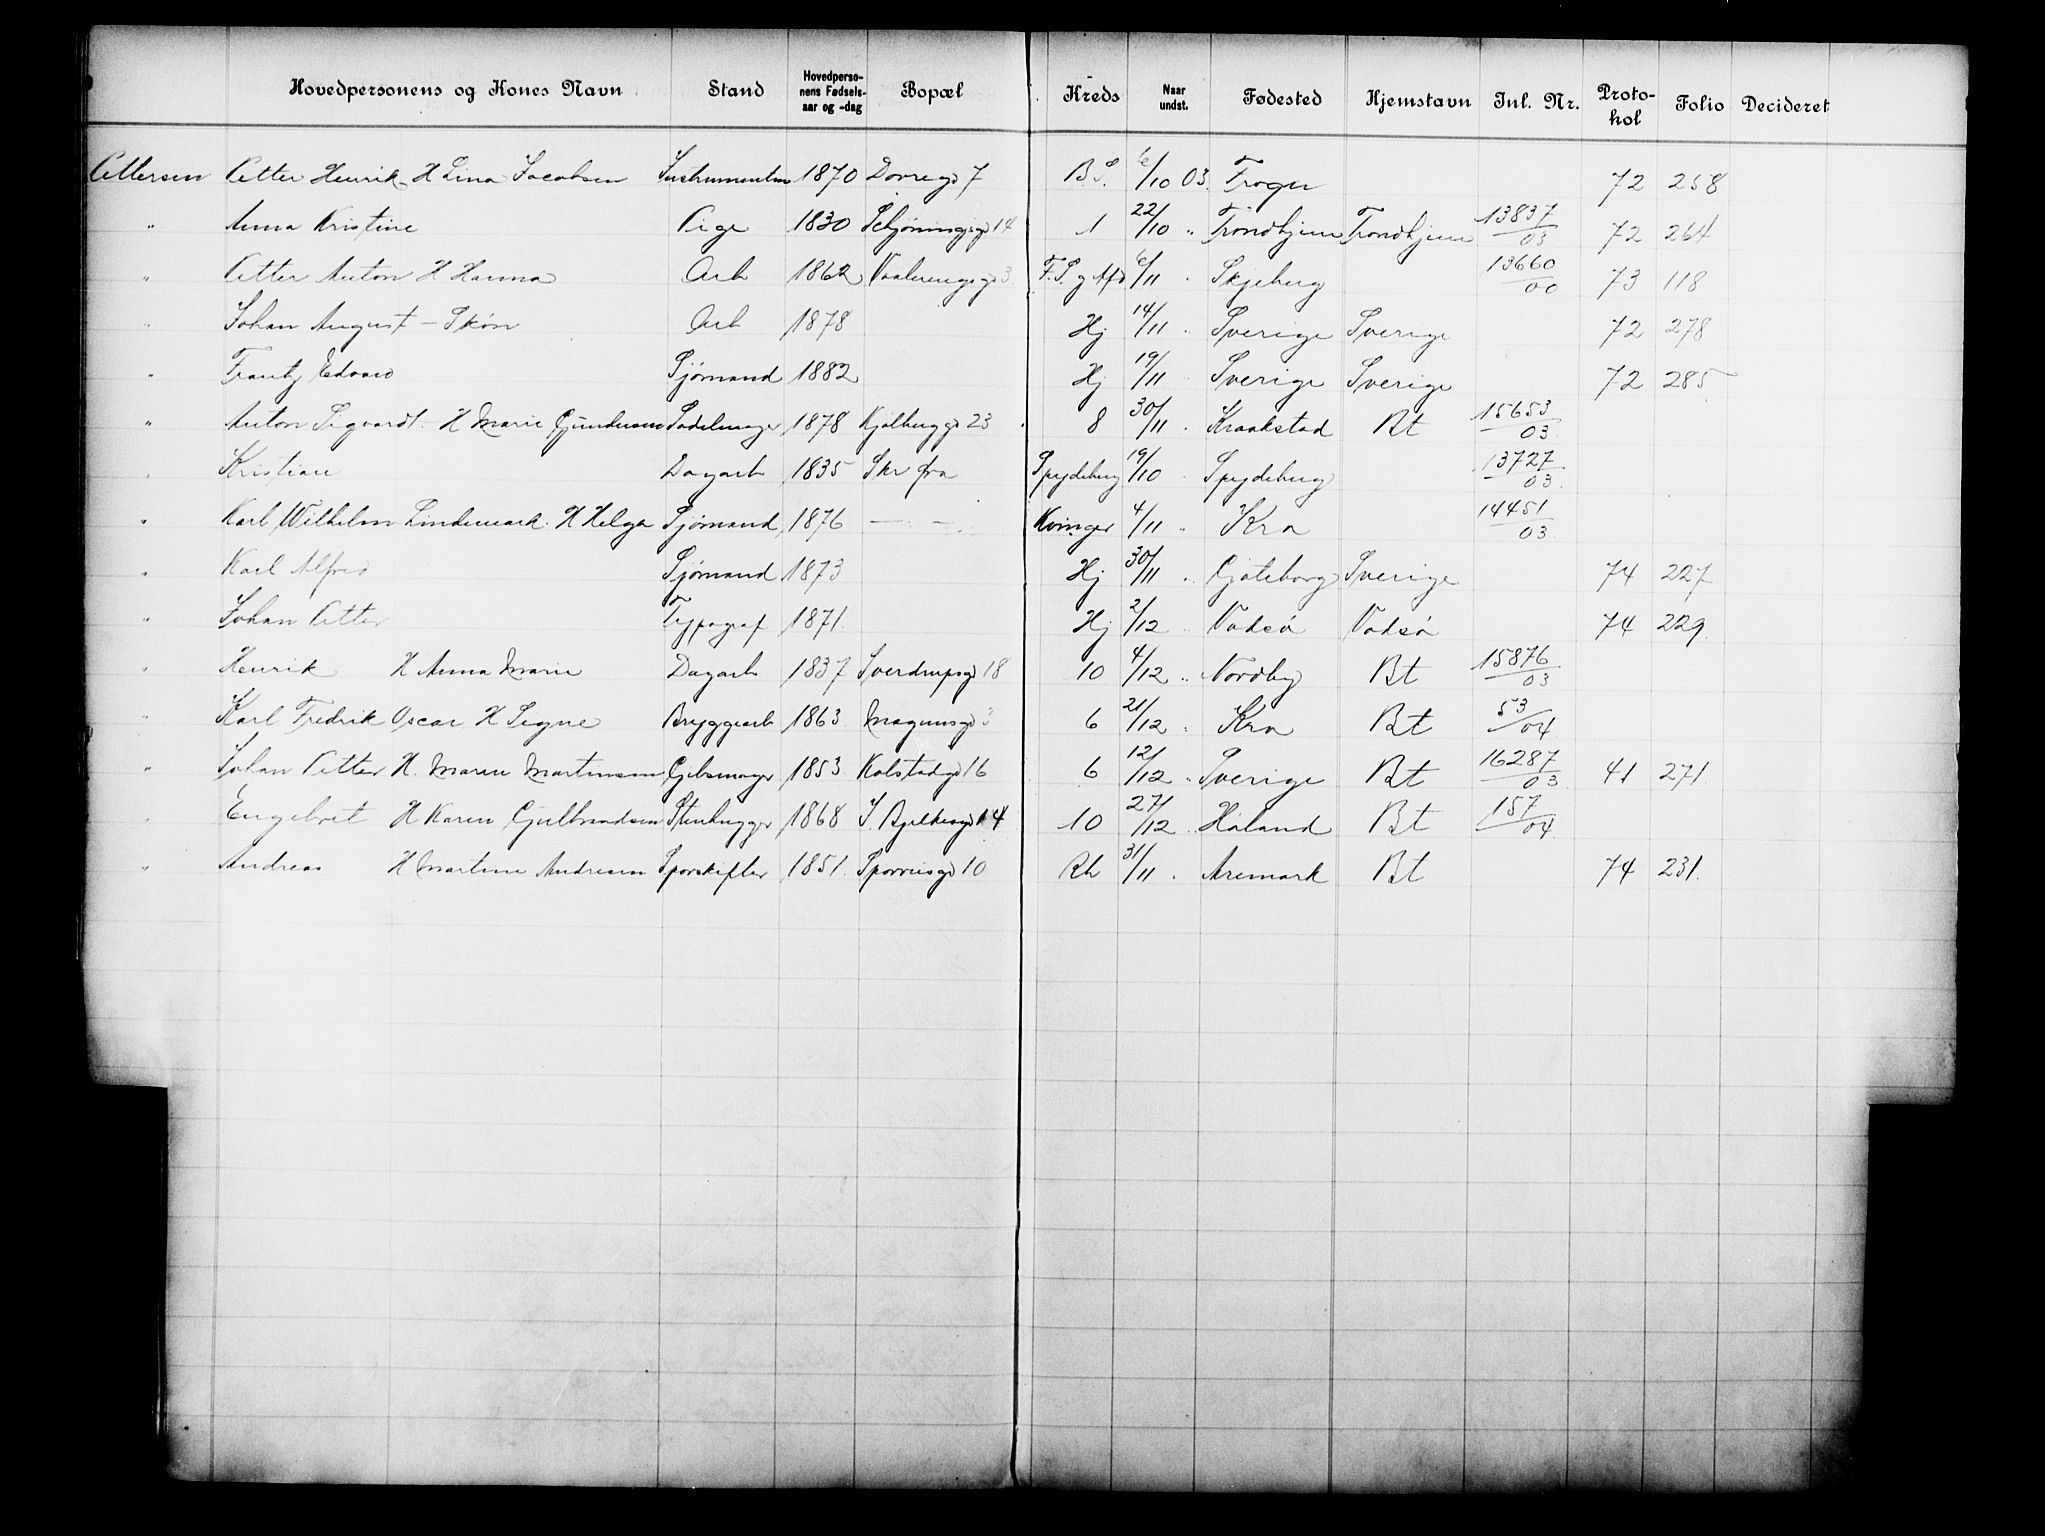 Hovedpersonens og Kones Navn Stand Hovedpersonens Fødselsaar og -dag Bopæl Kreds Naar undst. Fødested Hjemstavn Inl. Nr. Protokol Folio Decideret
Pettersen Petter Henrik H Lina Jacobsen 1870 Dovregd 7 B S. 6/10 03. Troger 72 258
" Anna Kristine Pige 1830 Schjøningsgd 14 1 22/10 " Trondhjem Trondhjem 13837/03 72 264
" Petter Anton H Hanna Arb 1862 Vaalerengsgd 3 6/11 " Skjeberg 13660/00 73 118
" Johan August - Skön Arb 1878 Hj 14/11 " Sverige Sverige 72 278
" Frantz Edvard Sjömand 1882 Hj 19/11 " Sverige Sverige 72 285
" Anton Sigvardt. H Marie Gundersen Sadelmager 1878 Kjølberggd 23 8 30/11 " Kraakstad Bt 15653/03
" Kristian Dagarb 1835 Skr fra Spydeberg 19/10 " Spydeberg 13727/03.
" Karl Wilhelm Lindemark. H Helga Sjömand 1876 — " — Kvinger 4/11 " Kra 14451/03
" Karl Alfred Sjömand 1873 Hj 30/11 " Gøteborg Sverige 74 227
" Johan Petter Typograf 1871. Hj 2/12 " Vadsø Vadsø 74 229.
" Henrik H Anna Marie Dagarb 1837 Sverdrupsgd 18 10 4/12 " Nordby Bt 15876/03
" Karl Fredrik Oscar H Signe Bryggearb 1863 Magnusgd 3 6 21/12 " Kra Bt 53/04
" Johan Petter H. Maren Martinsen Gibsmager 1853. Kolstadgd 16 6 12/12 " Sverige Bt 16287/03 41 271.
" Engebret H Karen Gulbrandsen Stenhugger 1868 J. Bjelkesgd 14 10 27/12 " Høland Bt 157/04
" Andreas H Martine Andresen Sporskifter 1851. Sporveisgd 10 Rh 31/11 " Aremark Bt 74 231.